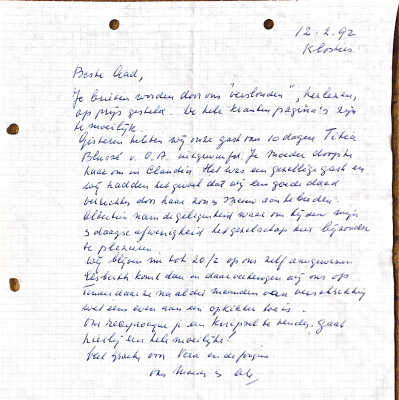 12.2.92
Klosters
Beste Aad,
Je brieven worden door ons "verslonden", herlezen,
op prijs gesteld. De hele krantenpagina's zijn
te moeilijk.
Gisteren hebben wij onze gast van 10 dagen Titia
v. O.A. uitgewuifd. Je moeder doopte
haar om in Claudia. Het was een gezellige gast en
wij hadden het gevoel dat wij een goede daad
verrichtten door haar zon & sneeuw aan te bieden.
Albertine nam de gelegenheid waar om bij een mijn
3 daagse afwezigheid het gezelschap hier bijzonder
te
Wij blijven nu tot 20/2 op ons zelf aangewezen.
Liesbeth komt dan en daar verheugen wij ons op.
daar ze na al die maanden van
wel eens even aan een opkikker toe is.
Ons is een te zenden. Gaat
hierbij een hele moeilijke!
Veel groeten voor Vera en de jongens
ons Moeder &